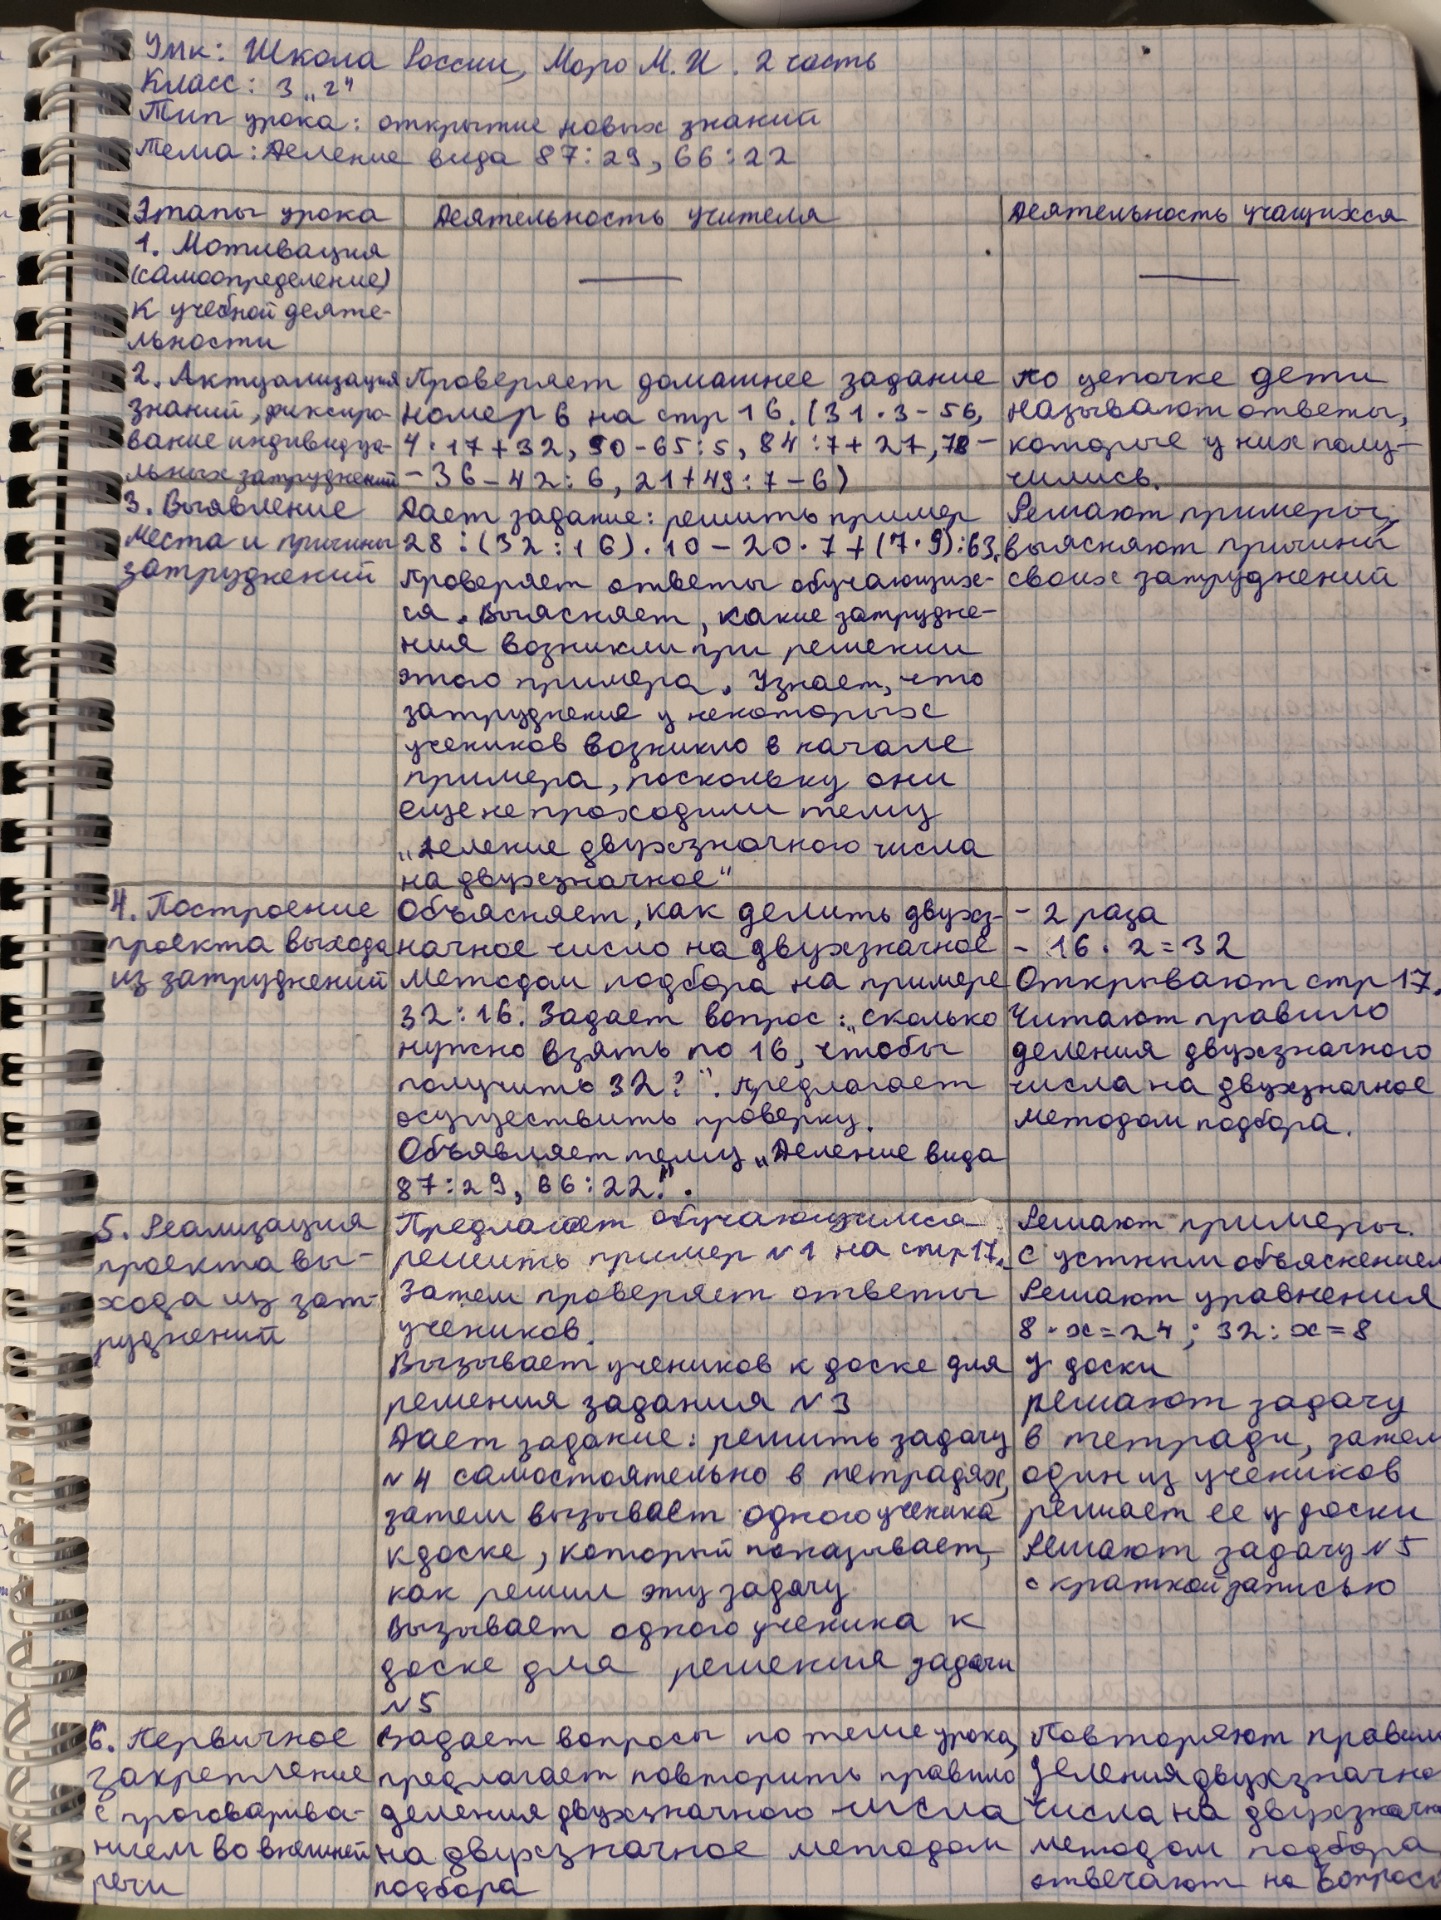 Умк: Школа России, Моро М.И. 2 часть
Класс: 3 „г"
Тип урока: открытие новых знаний
Тема: Деление вида 87:29, 66:22
Этапы урока
Деятельность учителя
Деятельность учащихся
1. Мотивация
(самоопределение)
к учебной деяте-
льности
2. Актуализация
знаний, фиксиро-
вание индивидуа-
льных затруднений
Проверяет домашнее задание
номер 6 на стр 16. (31·3-56,
4·17+32, 90-65:5, 84:7+27, 78-
-36-42:6, 21+49:7-6)
По цепочке дети
называют ответы,
которые у них полу-
чились.
3. Выявление
места и причины
затруднений
Дает задание: решить пример
28:(32:16)·10-20·7+(7·9):63.
Проверяет ответы обучающих-
ся. Выясняет, какие затрудне-
ния возникли при решении
этого примера. Узнает, что
затруднения у некоторых
учеников возникло в начале
примера, поскольку они
еще не проходили тему
„Деление двухзначного числа
на двухзначное"
Решают примеры,
выясняют причины
своих затруднений
4. Построение
проекта выхода
из затруднений
Объясняет, как делить двухз-
начное число на двухзначное
методом подбора на примере
32:16. Задает вопрос: „сколько
нужно взять по 16, чтобы
получить 32?". Предлагает
осуществить проверку.
Объявляет тему „Деление вида
87:29, 66:22.".
- 2 раза
- 16·2=32
Открывают стр 17.
Читают правило
деления двухзначного
числа на двухзначное
методом подбора.
5. Реализация
проекта вы-
хода из зат-
руднений
Предлагает обучающимся
решить пример №1 на стр 17.
Затем проверяет ответы
учеников.
Вызывает учеников к доске для
решения задания №3
Дает задание: решить задачу
№4 самостоятельно в тетрадях,
затем вызывает одного ученика
к доске, который показывает,
как решил эту задачу
Вызывает одного ученика к
доске для решения задачи
№5
Решают примеры.
с устным объяснением
Решают уравнения
8·x=24; 32:x=8
у доски
решают задачу
в тетради, затем
один из учеников
решает ее у доски
Решают задачу №5
с краткой записью
6. Первичное
закрепление
с проговарива-
нием во внешней
речи
Задает вопросы по теме урока,
предлагает повторить правило
деления двухзначного числа
на двухзначное методом
подбора
Повторяют правил
деления двухзначно
числа на двухзначн
методом подбора
отвечают на вопросы